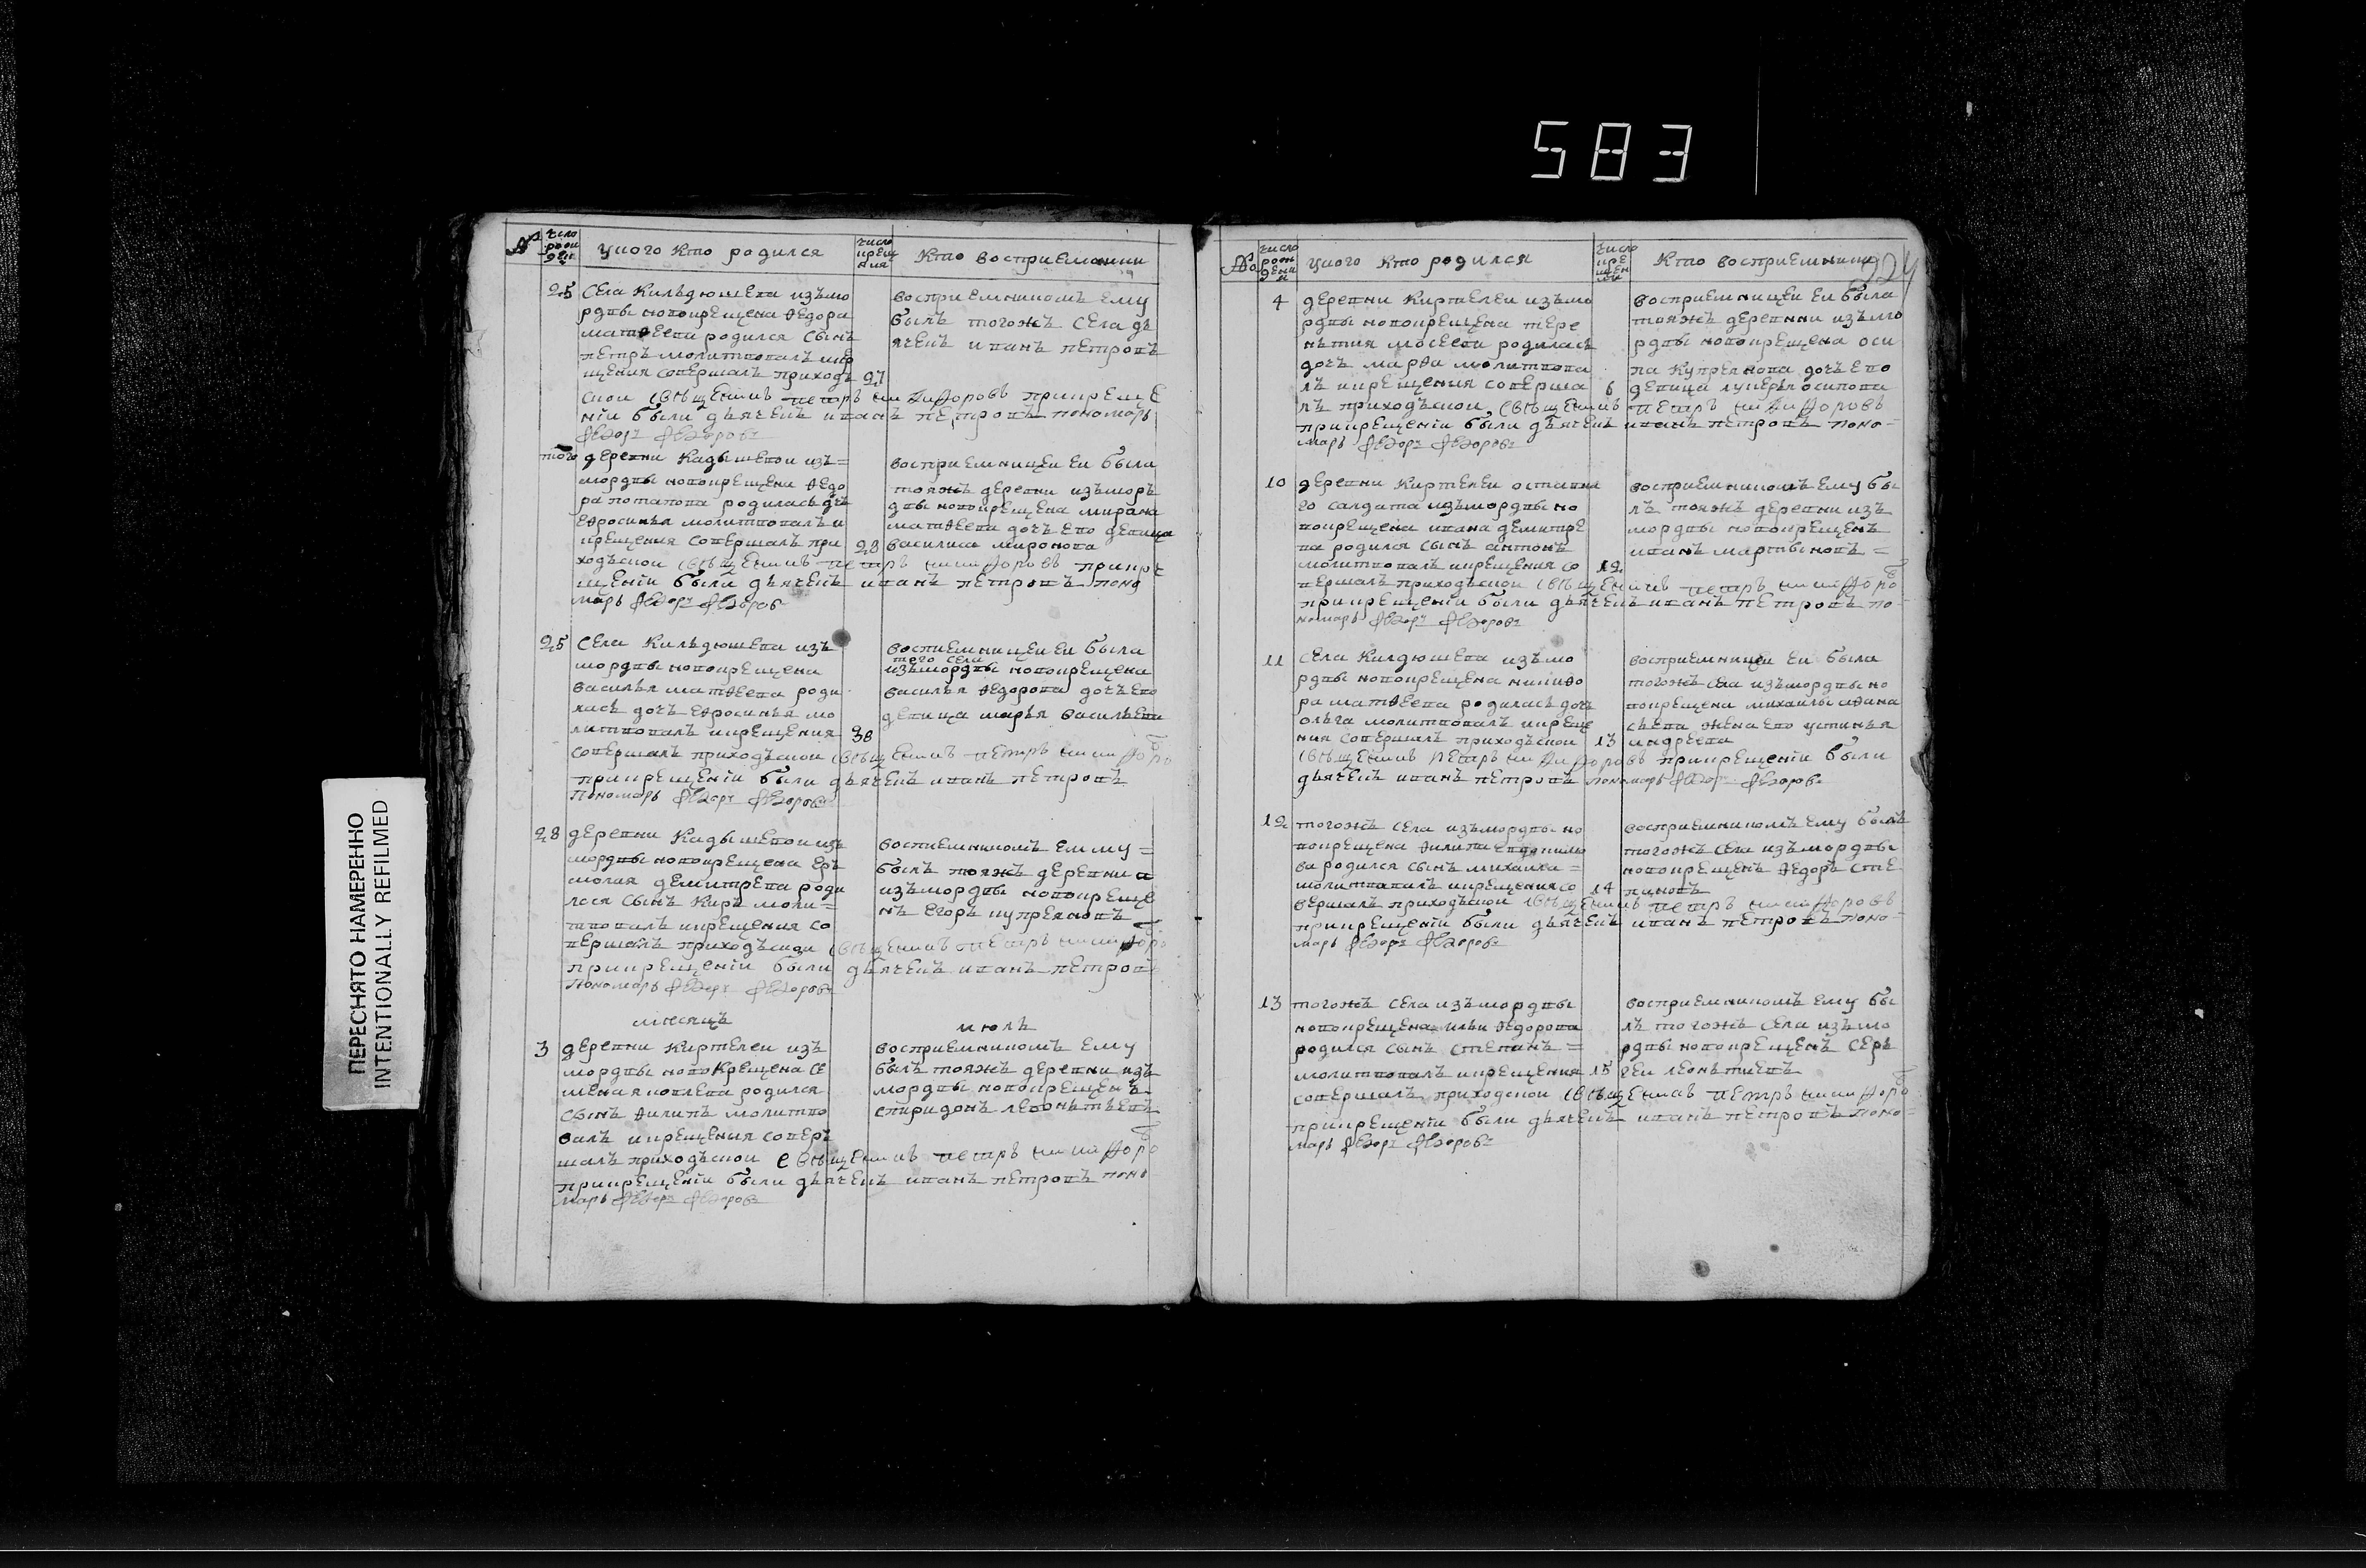 583
ПЕРЕСНЯТО НАМЕРЕННО
INTENTIONALLY REFILMED
№
число рожден
у кого кто родился
число крещения
Кто восприемники
25
села Кильдюшева изъ мо
рдвы новокрещена Ѳедора
матвеева родился сынъ
петръ молитвовалъ и кре
щения совершалъ приход
27
ской свѣщенникъ петръ никифоровъ при креще
нiи были дьячекъ иванъ петровъ пономарь
Федоръ Федоровъ
восприемникомъ ему
былъ тогожъ села дь
ячекъ иванъ петровъ
того
деревни Кадышевой изъ=
мордвы новокрещена Ѳедо
ра потапова родилась дчь
еѳросинья молитвовалъ и
крещения совершалъ при
28
ходъской свѣщенникъ петръ никифоровъ при кре
щенiи были дьячекъ иванъ петровъ поно
марь Федоръ Федоровъ
восприемницеи еи была
тояжъ деревни изъ морь
двы новокрещена мирона
матвеева дочь ево девица
василиса миронова
25
села Кильдюшева изъ
мордвы новокрещена
василья матвеева роди
лась дочь еѳросинья мо
литвовалъ и крещения
38
совершалъ приходъской свѣщенникъ петръ никифоровъ
при крещенiи были дьячекъ иванъ петровъ
Пономарь Федоръ Федоровъ
восприемницеи еи была
того села
изъ мордвы новокрещена
василья ѳедорова дочь ево
девица марья васильева
28
деревни Кадышевои изъ
мордвы новокрещена ерь
молая демитрева роди
лся сынъ Киръ моли=
твовалъ и крещения со
вершалъ приходъской свѣщенникъ петръ никифоровъ
при крещенiи были дьячекъ иванъ петровъ
Пономарь Федоръ Федоровъ
восприемникомъ ему=
былъ тояжъ деревни
изъ мордвы новокреще
нъ егоръ купреяновъ
месяцъ июль
3
деревни Киртелеи изъ
мордвы новокрещена се
мена яковлева родился
сынъ ѳилипъ молитво
валъ и крещения соверь
шалъ приходъской свѣщенникъ петръ никифоровъ
при крещенiи были дьячекъ иванъ петровъ поно
марь Федоръ Федоровъ
восприемникомъ ему
былъ тояжъ деревни изъ
мордвы новокрещенъ
спиридонъ левонтьевъ
224
№
число рождения
у кого кто родился
число крещения
Кто восприемники
4
деревни Киртелеи изъ мо
рдвы новокрещена тере
нътия мосеева родилась
дочь марѳа молитвова
лъ и крещения соверша
6
лъ приходъской свѣщенникъ петръ никифоровъ
при крещенiи были дьячекъ иванъ петровъ поно-
марь Федоръ Федоровъ
восприемницеи еи была
тояжъ деревни изъ мо
рдвы новокрещена оси
па Купреянова дочь ево
девица лукерья осипова
10
деревни Киртелеи отставна
го салдата изъ мордвы но
вокрещена ивана демитре
ва родился сынъ антонъ
молитвовалъ и крещения со
12
вершалъ приходъской свѣщенникъ петръ никифоровъ
при крещенiи были дьячекъ иванъ петровъ по-
номарь Федоръ Федоровъ
восприемникомъ ему бы
лъ тояжъ деревни изъ
мордвы новокрещенъ
иванъ мартыновъ=
11
села Килдюшева изъ мо
рдвы новокрещена никиѳо
ра матвеева родилась дочь
ольга молитвовалъ и креще
ния совершалъ приходъской
13
свѣщенникъ Петръ никифоровъ при крещенiи были
дьячекъ иванъ петровъ пономарь Федоръ Федоровъ
восприемницеи еи была
тогожъ села изъ мордвы но
вокрещена михаилы иѳана
сьева жена ево устинья
андреева
12
тогожъ села изъ мордвы но
вокрещена ѳилипа
ва родился сынъ михаила=
молитвовалъ и крещения со
14
вершалъ приходъской свѣщенникъ петръ никифоровъ
при крещенiи были дьячекъ иванъ петровъ поно-
марь Федоръ Федоровъ
восприемникомъ ему былъ
тогожъ села изъ мордвы
новокрещенъ ѳедоръ сте
пановъ
13
тогожъ села изъ мордвы
новокрещена ильи ѳедорова
родился сынъ степанъ=
молитвовалъ и крещения
15
совершалъ приходской свѣщенникъ петръ никифоровъ
при крещенiи были дьячекъ иванъ петровъ поно-
марь Федоръ Федоровъ
восприемникомъ ему бы
лъ тогожъ села изъ мо
рдвы новокрещенъ серь
геи леонътиевъ